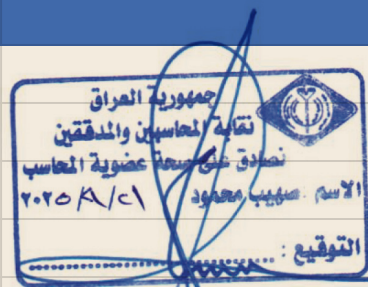 جمهورية العراق
نقابة المحاسبين والمدققين
نصادق على صحة عضوية المحاسب
الاسم صهيب محمود ٢٠٢٥/٨/٢١
التوقيع :